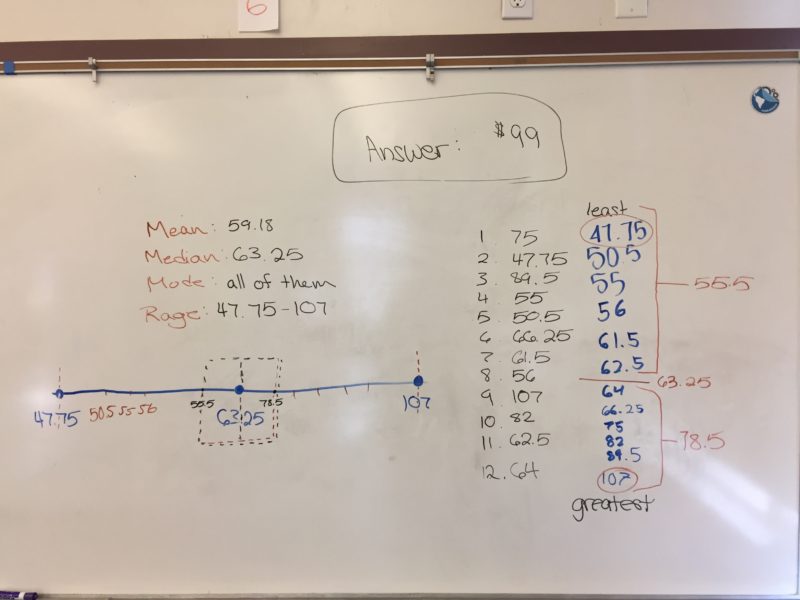 6
Answer: $99
Mean: 59.18
Median: 63.25
Mode: all of them
Rage: 47.75-107
47.75
50.5 55 56
55.5
63.25
78.5
107
1. 75
2. 47.75
3. 89.5
4. 55
5. 50.5
6. 66.25
7. 61.5
8. 56
9. 107
10. 82
11. 62.5
12. 64
least
47.75
50.5
55
56
61.5
62.5
64
66.25
75
82
89.5
107
greatest
55.5
63.25
78.5